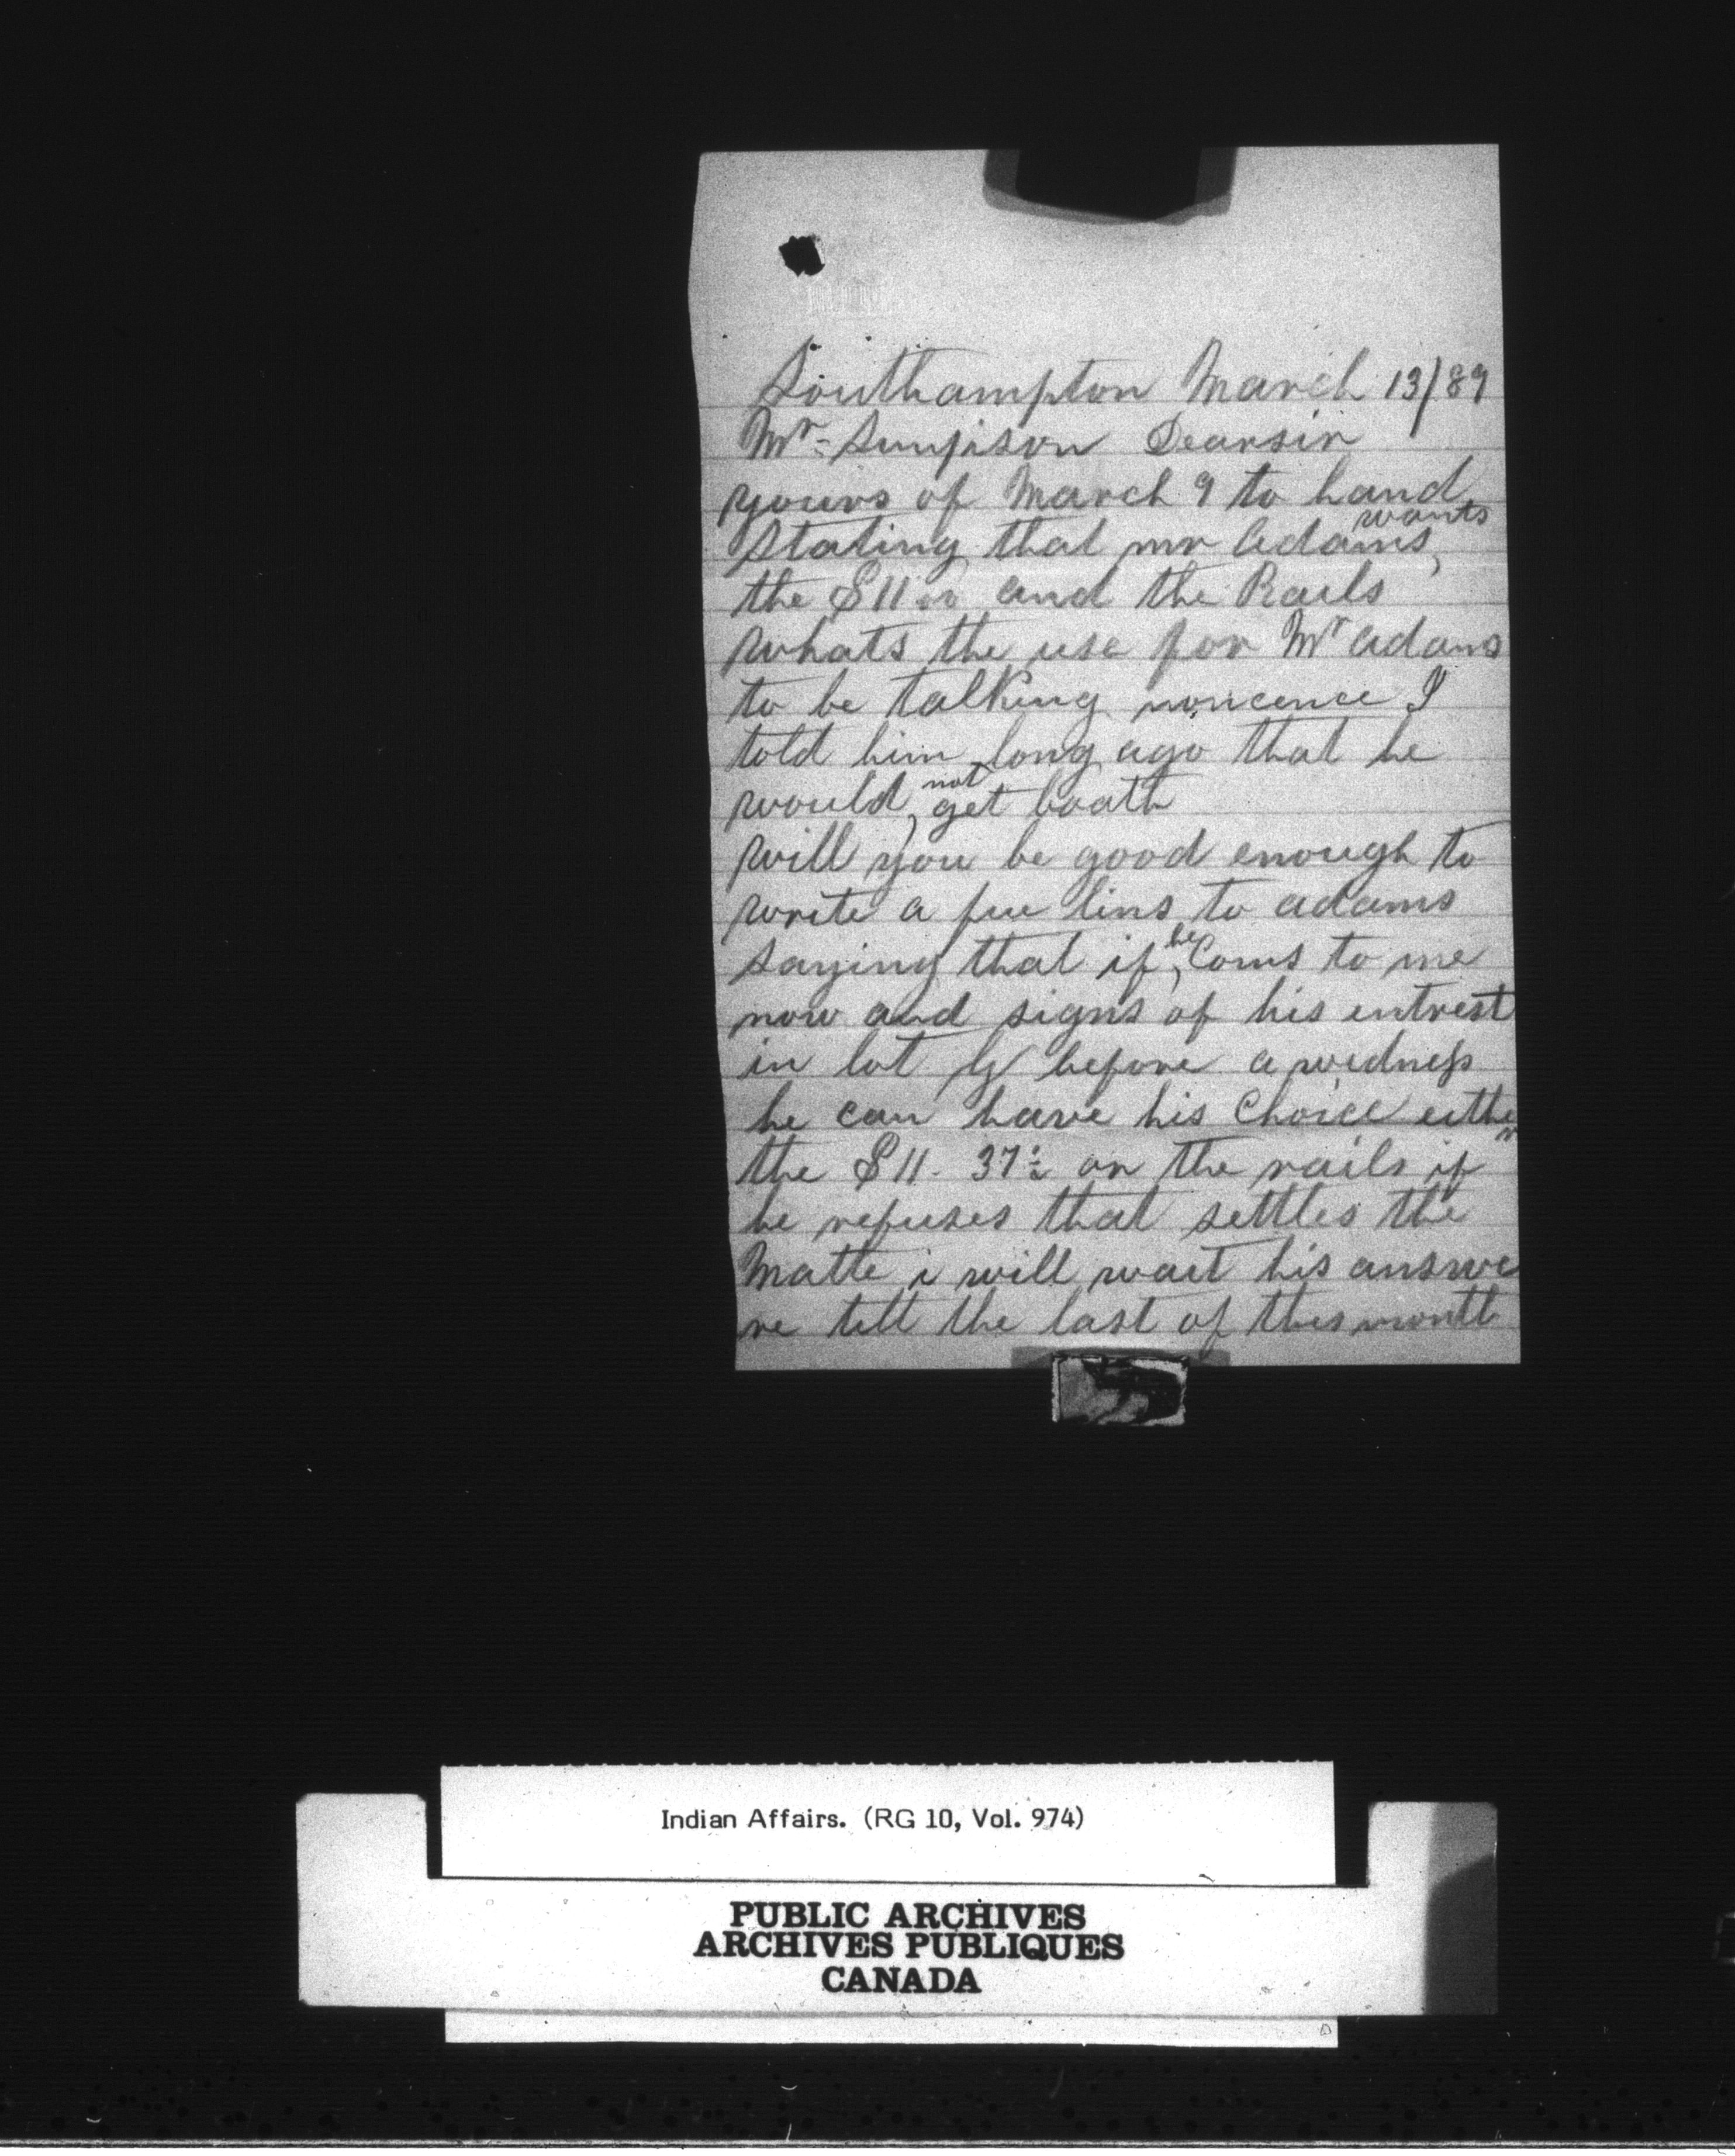 Southampton March 13/89
Mr. Simpison Dearsir
yours of March 9 to hand
Stating that mr Adams, wants
the $11.00 and the Rails
whats the use for Mr adams
to be talking noncence I
told him long ago that he
would, not get boath
will you be good enough to
write a fue lins to adams
saying that if, he Coms to me
now and signs of his entrest
in lot before a widness
he can have his Choice either
the $11. 37½ or the rails if
he refuses that settles the
Matte i will wait his answe
re till the last of this month
Indian Affairs. (RG 10, Vol. 974)
PUBLIC ARCHIVES
ARCHIVES PUBLIQUES
CANADA